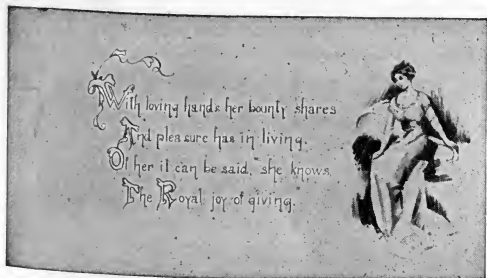 With loving hands her bounty shares
And pleasure has in living.
Of her it can be said, she knows
The Royal joy of giving.